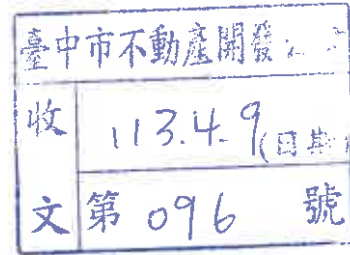 臺中市不動產開發
收 113.4.9(日期
文 第 096 號